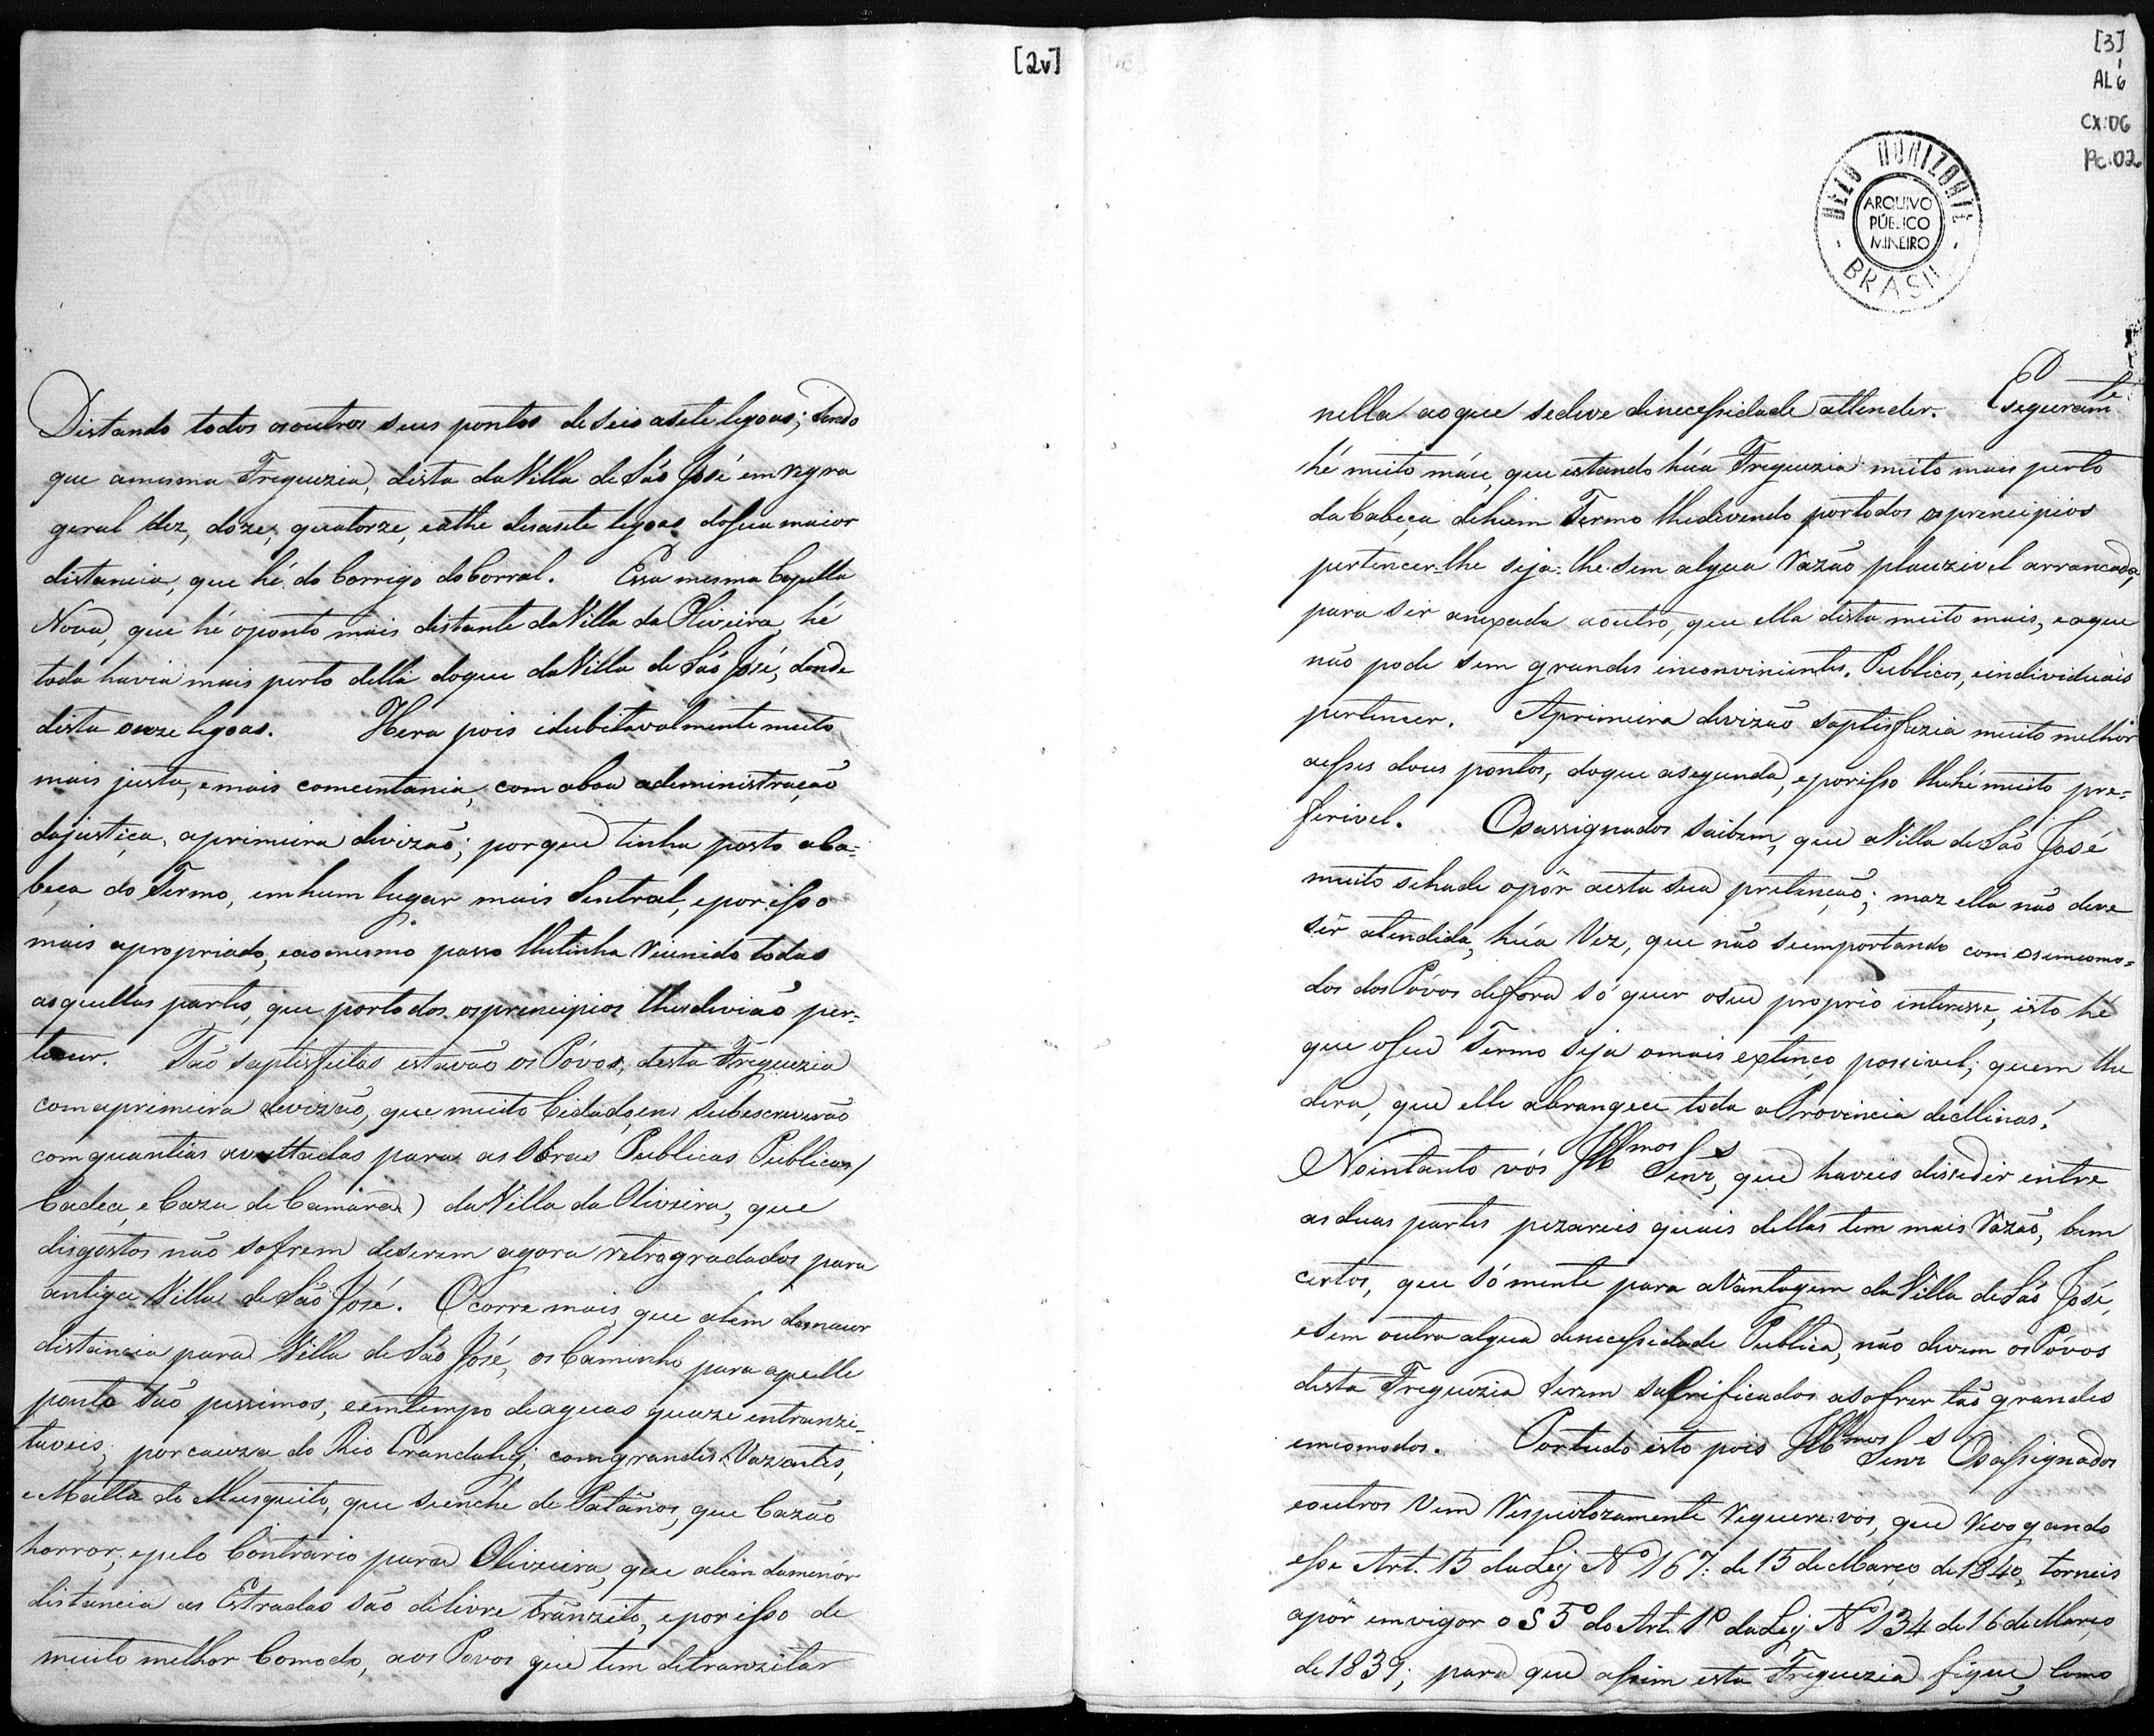 [2v]
Distando todos os outros seus pontos de seis a sete legoas; sendo
que a mesma Freguezia, dista da Villa de São José em regra
geral dez, doze, quatorze, e athe desasete legoas, da sua maior
distancia, que hé do Corrigo do Corral. Essa mesma Capella
Nova, que hé o ponto mais distante da Villa da Oliveira, hé
toda havia mais perto della do que da Villa de São José, donde
dista onze legoas. Hera pois idubitavalmente muito
mais justa, e mais comcentania, com a boa administração
da justiça, a primeira divizão; porque tinha posto a Ca-
beça do Termo, em hum lugar mais Sentral, e por isso
mais apropriado, e ao mesmo passo lhe tinha reunido todas
aquellas partes, que por todos os principios lhes divião per-
tencer. Tão saptisfeitos estavão os Póvos, desta Freguezia
com a primeira devizão, que muito Cidadoens subescreverão
com quantias avultadas para as Obras Publicas Publicas (
Cadea, e Caza de Camara) da Villa da Oliveira, que
disgostos não sofrem de serem agora retrogradados para
antiga Villa de São José. Ocorre mais, que alem da maior
distancia para Villa de São José, os Caminho para aquelle
ponto são pessimos, e em tempo de aguas quaze entranzi-
taveis, por cauza do Rio Crandahy, com grandes Vazantes,
e Matta do Musquito, que se enche de Patanos, que Cazão
horror, e pelo Contrario para Oliveira, que alem da menór
distancia as Estradas são de livre tranzito, e por isso de
muito melhor Comodo, aos Povos que tem de tranzitar
[3]
AL 6
CX:06
Pc:02
BELO HORIZONTE
ARQUIVO
PÚBLICO
MINEIRO
BRASIL
nella ao que se deve de necessidade attender. E seguramte
hé muito máu, que estando húa Freguezia muito mais perto
da Cabeça de hum Termo lhe devendo por todos os principios
pertencer-lhe seja-lhe sem algua razão plauzivel arrancada,
para ser anexada a outro, que ella dista muito mais, e a que
não pode sem grandes inconvinientes, Publicos, e individuáis
pertencer. A primeira divizão saptisfazia muito melhór
a esses dous pontos, do que a segunda, e por isso lhe hé muito pre-
ferivel. Os assignados saibem, que a Villa de São José
muito se hade opôr a esta sua pretenção; maz ella não deve
sêr atendida, húa Vez, que não se importando com os incomo-
dos dos Póvos de fora só quer o seu proprio interesse, isto hé
que o seu Termo seja o mais extenço possivel; quem lhe
dera, que elle abrangece toda a Provincia de Minas!
No intanto vós Illmos Senrs, que haveis dissedir entre
as duas partes pezareis quais dellas tem mais razão, bem
certos, que sómente para a Vantagem da Villa de São José,
e sem outra algua denecessidade Publica, não devem os Póvos
desta Freguezia serem sacrificados a sofrer tão grandes
emcomodos. Por tudo isto pois Illmos Senrs Os assignados
e outros vem respeitozamente requerer-vos, que revogando
esse Art. 15 da Ley Nº 167: de 15 de Março de 1840, torneis
apôr em vigor o § 5º do Art. 1º da Ley Nº 134 de 16 de Março
de 1839; para que assim esta Freguezia fique, Como